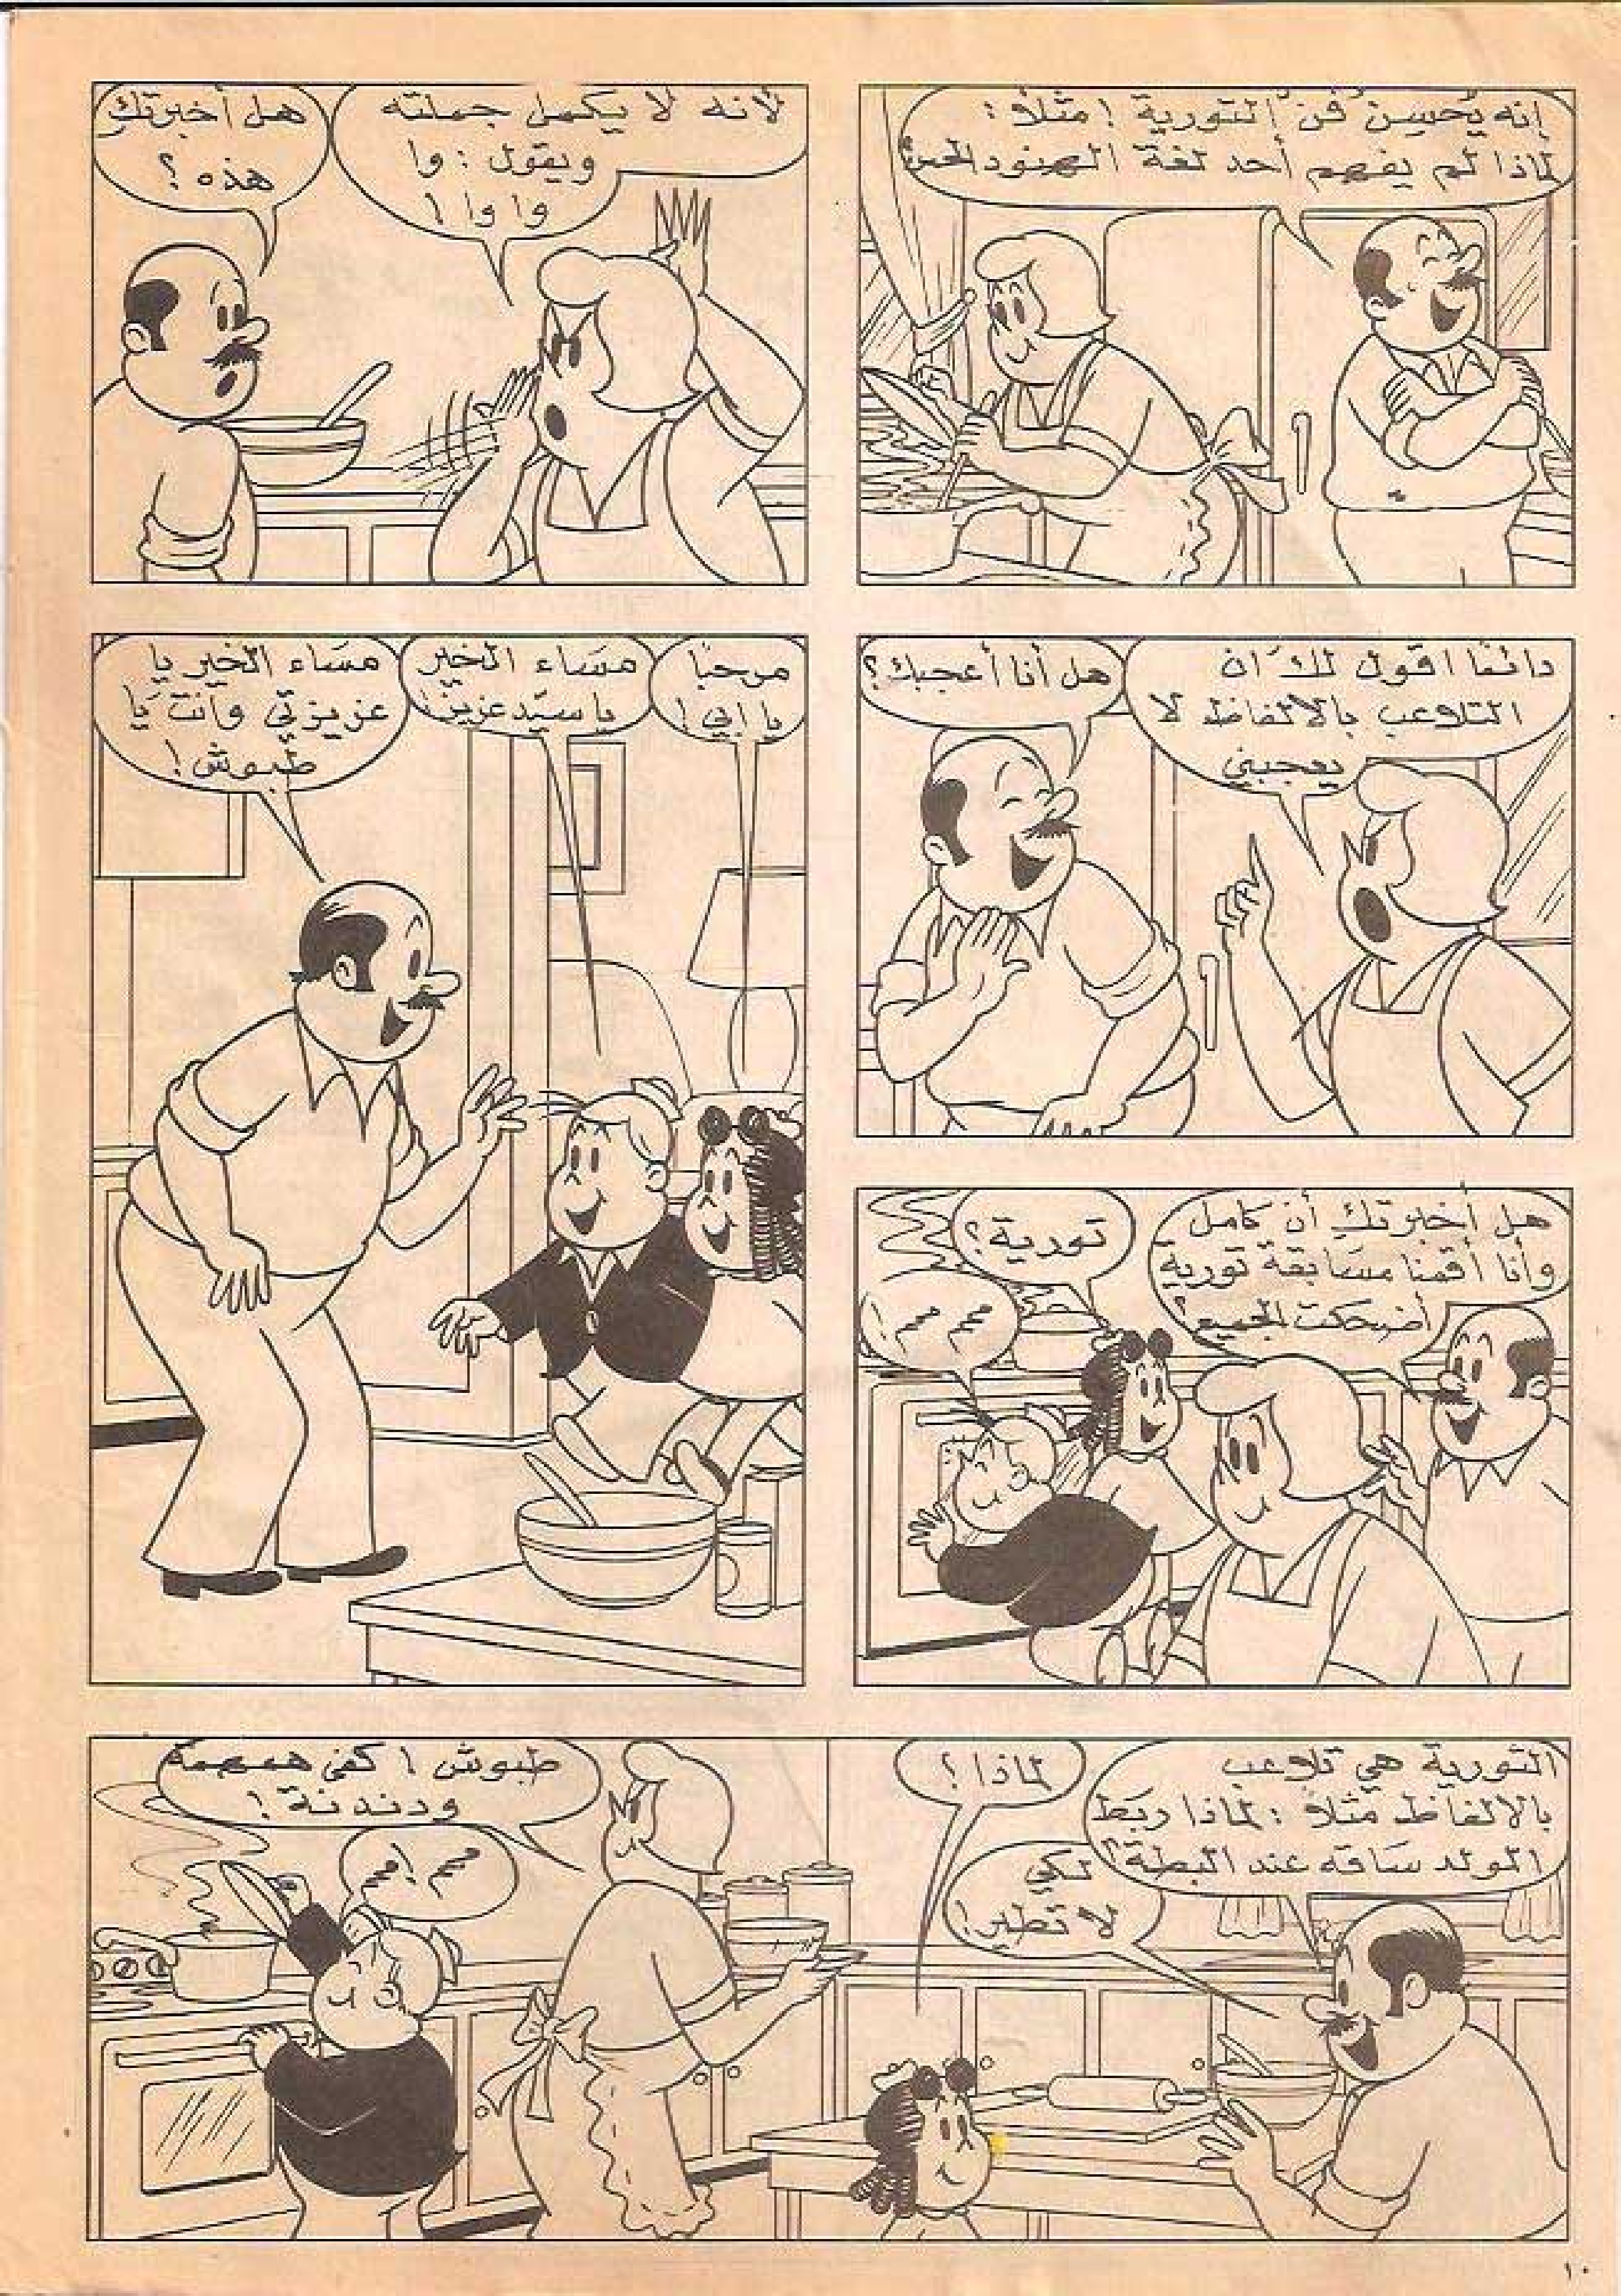 إنه يُحسِن فن التورية ! مثلاً :
لماذا لم يفهم أحد لغة الهنود الحمر؟
لأنه لا يكمل جملته
ويقول : وا
وا وا !
هل أخبرتكِ
هذه ؟
دائمًا اقول لكَ ان
التلاعب بالالفاظ لا
يعجبني
هل أنا أعجبك ؟
مرحبًا
يا ابي !
مساء الخير
يا سيّد عزيز !
مسَاء الخير يا
عزيزتي وانتَ يا
طبوش !
هل أخبرتكِ أن كامل
وأنا أقمنا مسَابقة تورية
أضحكت الجميع ؟
تورية ؟
مم مم !
التورية هي تلاعب
بالالفاظ مثلاً : لماذا ربَط
الولد سَاقه عند البطة ؟
لكي
لا تطير !
لماذا ؟
طبوش ! كفى همهمة
ودندنة !
مم ! مم
١٠